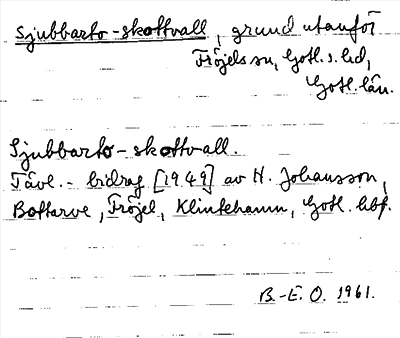 Sjubbarto-skottvall, grund utanför
Fröjels sn, Gotl. s. hd,
Gotl. län.
Sjubbarto-skottvall.
Tävl.-bidrag [1949] av H. Johansson,
Bottarve, Fröjel, Klintehamn, Gotl. hbf.
B.-E. O. 1961.